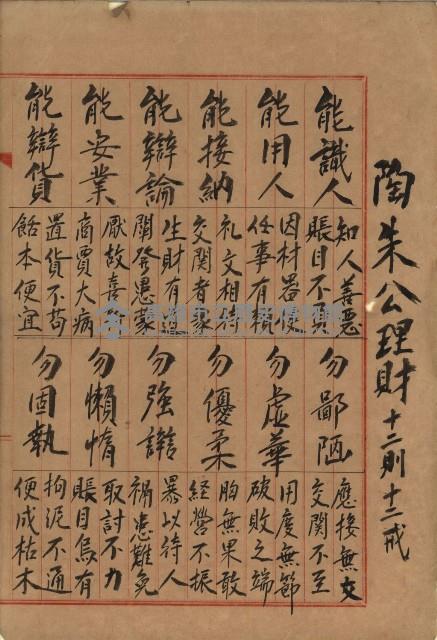 陶朱公理財十二則十二戒
能識人
知人善惡
賬目不負
能用人
因材器使
任事有賴
能接納
礼文相待
交関者衆
能辯論
生財有道
闡發愚蒙
能安業
厭故喜新
商賈大病
能辯貨
置貨不苟
餂本便宜
勿鄙陋
應接無文
交関不至
勿虛華
用度無節
破敗之端
勿優柔
胸無果敢
經營不振
勿強諎
暴以待人
禍患難免
勿懶惰
取討不力
賬目烏有
勿固執
拘泥不通
便成枯木